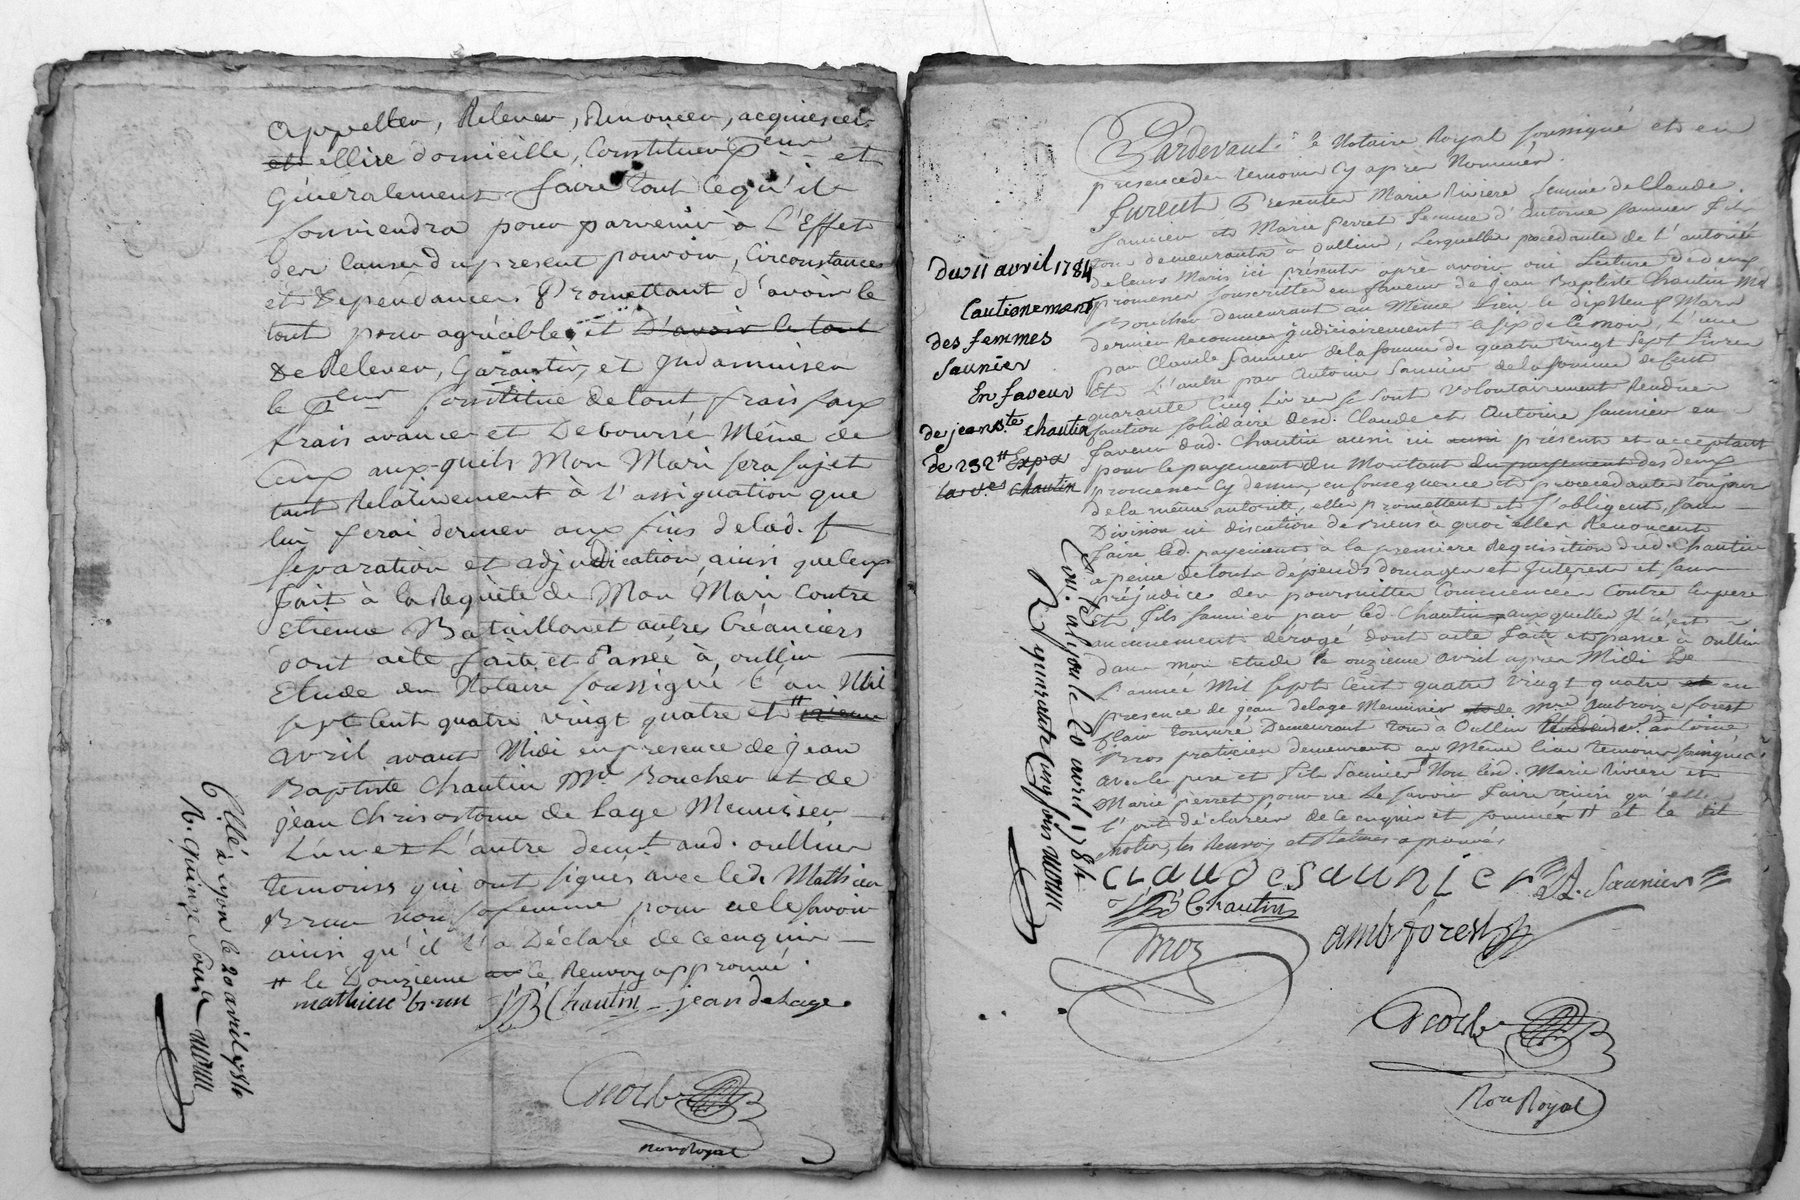 appeller, Relever, Renoncer, acquiescer
et ellire domicille, Constituer peur et
Généralement faire tout ce qu'il
Conviendra pour parvenir à L'Effet
des causes du present pouvoir, Circonstances
et Dependances Promettant d'avoir le
tout pour agréable, et D'avoir le tout
De Relever, Garantir, et Indamniser
le peur Constitué de tout frais faux
frais avances et Deboursé Même de
Ceux aux-quels Mon Mari sera sujet
tant Relativement à l'assignation que
lui ferai donner aux fins de lad.
separation et adjudication, ainsi que ceux
fait à la Requête de Mon Mari Contre
Etienne Bataillon et autres Créanciers
dont acte fait et Passé à oullin
Etude du Notaire soussigné l'an Mil
sept Cent quatre vingt quatre et
avril avant Midi en presence de jean
Baptiste Chautin Md Boucher et de
jean Chrisostome de Lage Menuisier
L'un et L'autre demt. aud. oullin
temoins qui ont signés avec led. Mathieu
Brun non sa femme pour ne le savoir
ainsi qu'il l'a Déclaré de ce enquis
le Douzieme le Renvoy approuvé.
mathieu brun JB Chautin jean delage
à Lyon le 20 avril 1784
R. quinze sols
Not Royal
Pardevant le Notaire Royal soussigné et en
presence des temoins cy apres Nommés.
furent Presentes Marie Riviere femme de Claude
Saunier et Marie Perret femme d'Antoine Saunier fils
tous demeurants à oullin, Lesquelles procedante de l'autorité
de leurs Maris ici présents après avoir oui Lecture de deux
promesses souscrittes en faveur de jean Baptiste Chautin Md
Boucher demeurant au Même Lieu le dix Neuf Mars
dernier Reconnues judiciairement le six de ce mois, L'une
par Claude Saunier de la somme de quatre vingt sept Livres
et L'autre par Antoine Saunier de la somme de Cent
quarante Cinq Livres se sont volontairement Rendues
Caution solidaire desd. Claude et Antoine Saunier en
faveur dud. Chautin aussi ici présent et acceptant
pour le payement du Montant du payement des deux
promesses cy dessus, en consequence et procedante toujour
de la même autorité, elles promettent et s'obligent, sans
Division ni discution de biens à quoi elles Renoncent
faire led. payements à la premiere Requisition dud. Chautin
a peine de touts dépends domages et Interets et sans
préjudice des poursuittes Commencées Contre les pere
et fils Saunier par led. Chautin auxquelles Il n'est
aucunement dérogé dont acte fait et passé à oullin
dans mon Etude le onzieme avril après Midi De
l'année Mil sept Cent quatre vingt quatre en
presence de jean delage Menuisier de Mre Ambroise forest
Clerc tonsuré Demeurant tous à Oullin antoine
Bros praticien demeurant au Même lieu temoins soussignés
avec les pere et fils Saunier Non lesd. Marie Riviere et
Marie pierret pour ne Le savoir faire ainsi qu'elles
l'ont déclarées de ce enquises et sommées et le dit
Notre, les Renvoy et Ratures aprouvés
du 11 avril 1784
Cautionement
des femmes
Saunier
En faveur
de jean Bte. chautin
de 232tt Expa
Chautin
Con. a Lyon le 20 avril 1784
R quarante Cinq sols
claude saunier A. Saunier
JB Chautin
amb forest
Bros
Not Royal